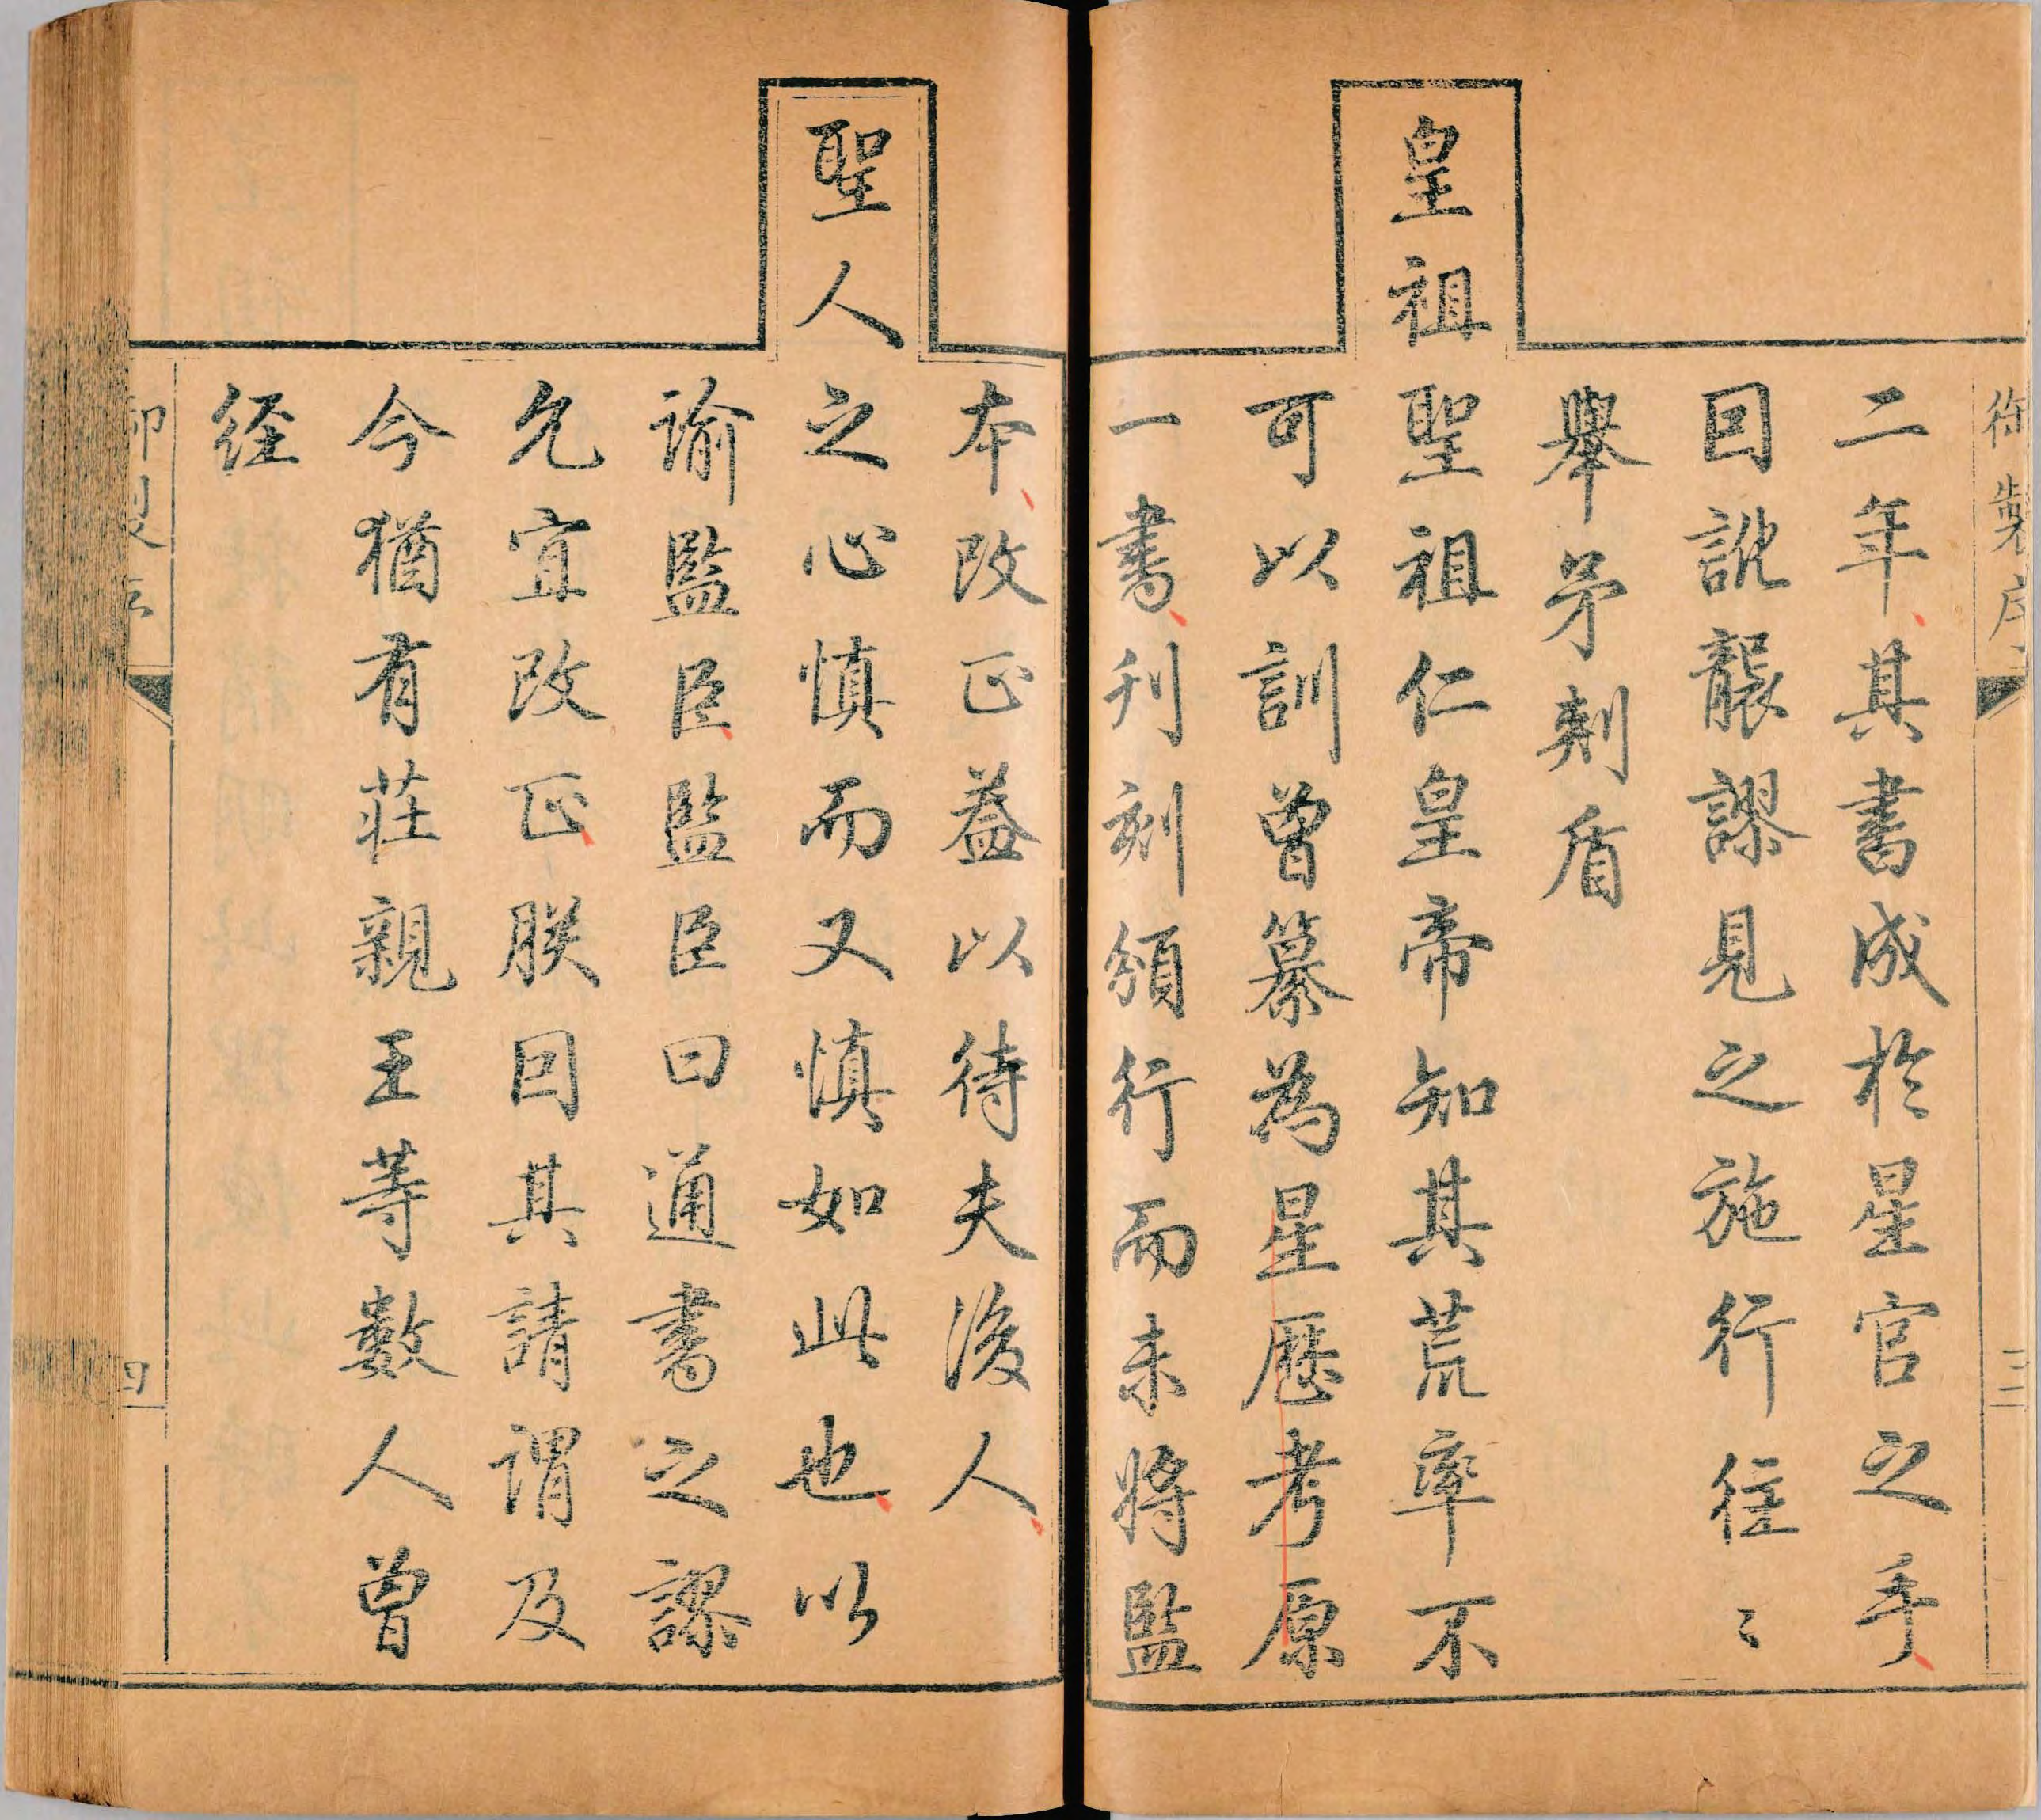 御製序
三
二年其書成於星官之手
回訛襲謬見之施行往〻
舉矛刺盾
皇祖聖祖仁皇帝知其荒率不
可以訓曾纂為星歷考原
一書刊刻頒行而未將監
本改正蓋以待夫後人
聖人之心慎而又慎如此也以
諭監臣監臣曰通書之謬
允宜改正朕因其請謂及
今猶有莊親王等數人曾
経
御製序
四